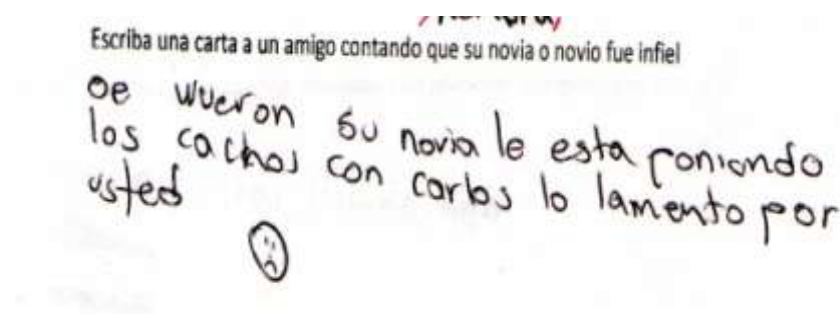 Escriba una carta a un amigo contando que su novia o novio fue infiel
oe wueron su novia le esta poniondo
los cachos con carlos lo lamento por
usted